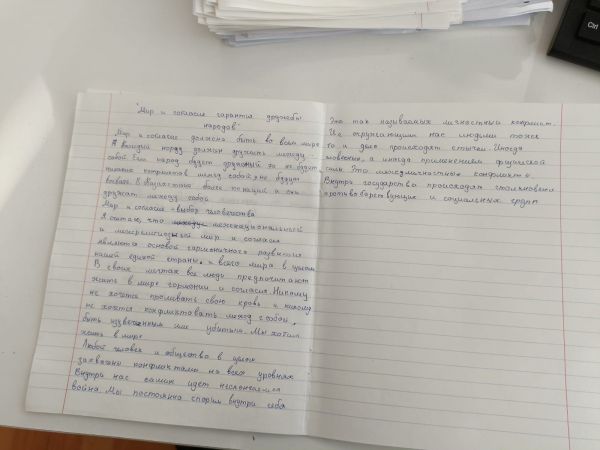 "Мир и согласие гарантя дружбы
народов"
Мир и согласие должно быть во всем мире
А каждый народ должен дружить между
собой. Если народ будет дружный то не будет
никаких конфликтов между собой, не будут
В Казахстане более наций и они
дружат между собой
Мир и согласие - выбор человечества
Я считаю, что межнациональный
и межрелигиозный мир и согласие
являются основой гармоничного развития
нашей единой страны, и всего мира в целом
В своих мечтах все люди предпочитают
жить в мире гармонии и согласия. Никому
не хочется проливать свою кровь и никому
не хочется конфликтовать между собой,
быть или убитыми. Мы хотим
жить в мире
Любой человек и общество в целом
захвачены конфликтами на всех уровнях
Внутри нас самих идет
война. Мы постоянно спорим внутри себя
Это так называемых личностный конфликт.
И с окружающими нас людьми тоже
то и дело происходят стычки Иногда
словесные, а иногда применением физической
силы. Это межличностные конфликты.
Внутри государства происходят столкновения
противоборствующие и социальных групп
Ctrl